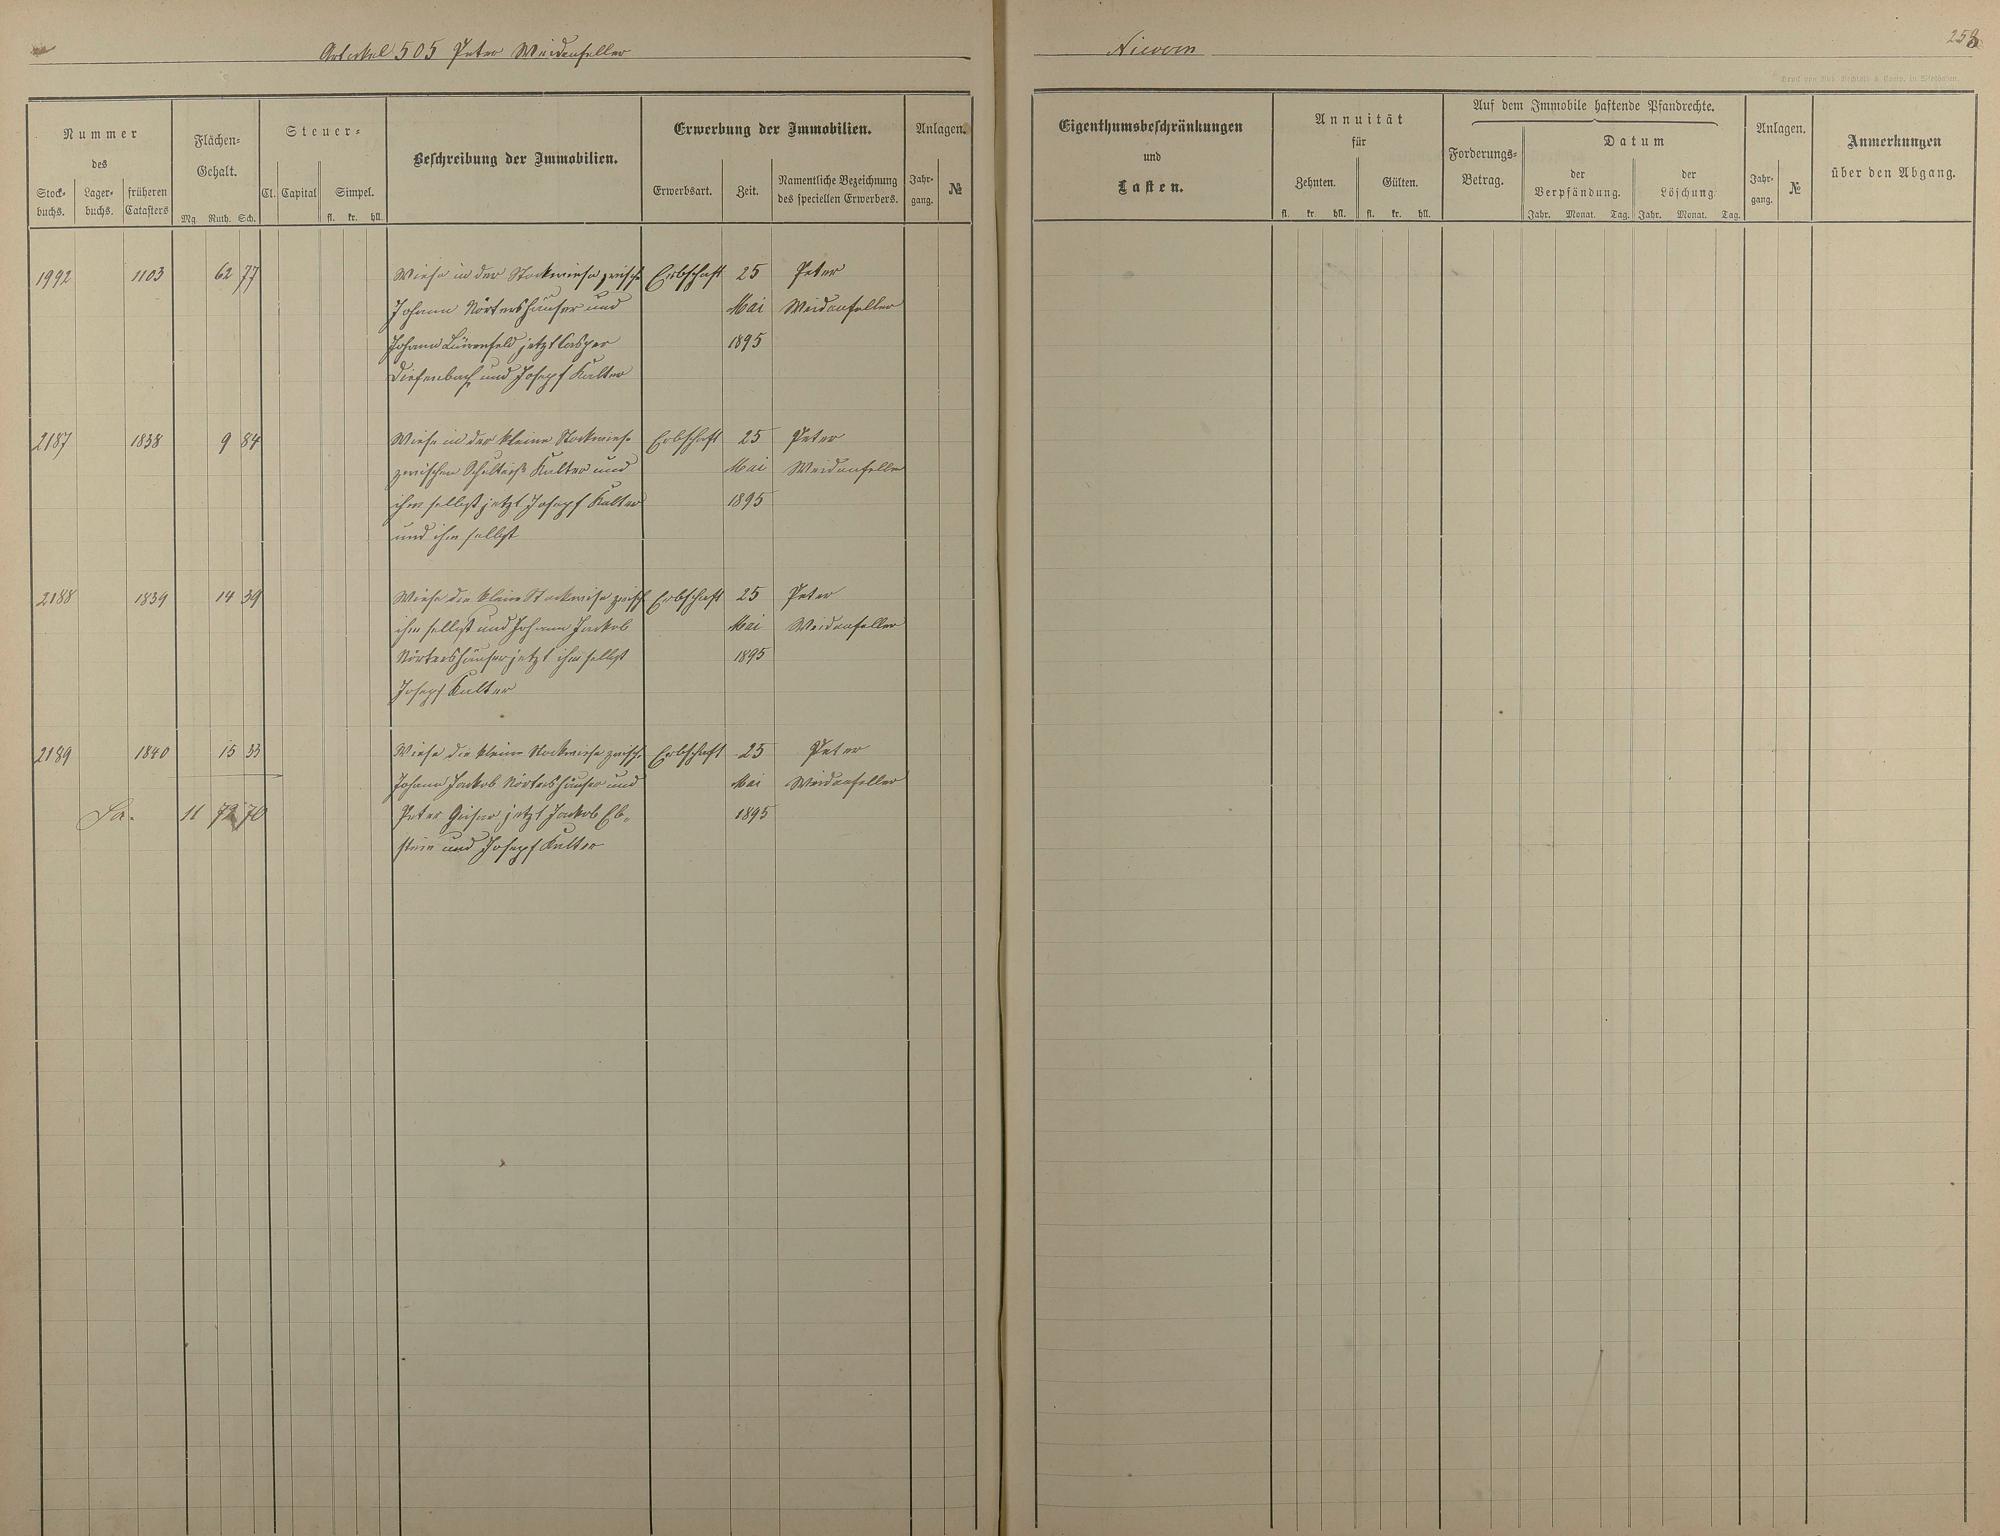 Artickel 505 Peter Weidenfeller
Nievern
253
Druck von Rud. Bechtold & Comp. in Wiesbaden.
Nummer
des
Stock-
buchs.
Lager-
buchs.
früheren
Catasters
Flächen-
Gehalt.
Mg. Ruth. Sch.
Steuer-
Cl. Capital Simpel.
fl. kr. hll.
Beschreibung der Immobilien.
Erwerbung der Immobilien.
Erwerbsart. Zeit.
Namentliche Bezeichnung
des speciellen Erwerbers.
Anlagen.
Jahr-
gang.
№
Eigenthumsbeschränkungen
und
Lasten.
Annuität
für
Zehnten. Gülten.
fl. kr. hll. fl. kr. hll.
Auf dem Immobile haftende Pfandrechte.
Forderungs-
Betrag.
Datum
der
Verpfändung.
der
Löschung
Jahr. Monat. Tag. Jahr. Monat. Tag.
Anlagen.
Jahr-
gang.
№
Anmerkungen
über den Abgang.
1992 1103 62 77 Wiese in der Stockwiese zwisch Erbschaft 25 Peter
Johann Nörtershäuser und Mai Weidenfeller
Johann jetzt Casper 1895
Diefenbach und Josef Kalter
2187 1838 9 84 Wiese in der kleine Stockwiese Erbschaft 25 Peter
zwischen Schultheiß Kalter und Mai Weidenfeller
ihm selbst jetzt Josepf Kalter 1895
und ihm selbst
2188 1839 14 39 Wiese die kleine Stockwiese zwisch Erbschaft 25 Peter
ihm selbst und Johann Jackob Mai Weidenfeller
Nörtershäuser jetzt ihm selbst 1895
Josepf Kalter
2189 1840 15 33 Wiese die kleine Stockwiese zwisch. Erbschaft 25 Peter
Johann Jackob Nörtershäuser und Mai Weidenfeller
Sa. 11 72 70 Peter jetzt Jackob Eb- 1895
stein und Josepf Kalter